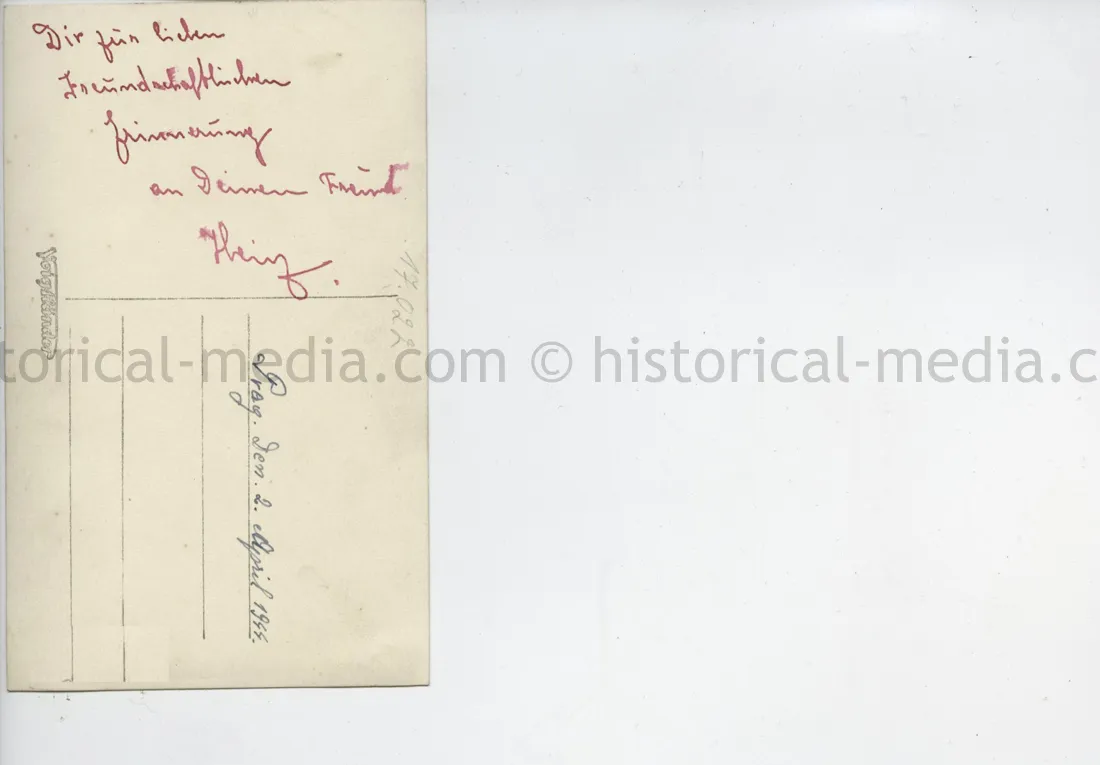 Dir zur lieben
Freundschaftlichen
Erinnerung
an Deinen Freund
Heinz.
17.022
Voigtländer
Prag. Den. 2. April 1944.
historical-media.com © historical-media.c